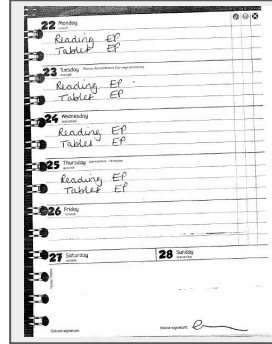 22 Monday
Reading EP
Tablet EP
23 Tuesday
Reading EP
Tablet EP
24 Wednesday
Reading EP
Tables EP
25 Thursday
Reading EP
Tables EP
26 Friday
27 Saturday
28 Sunday
School signature:
Home signature: